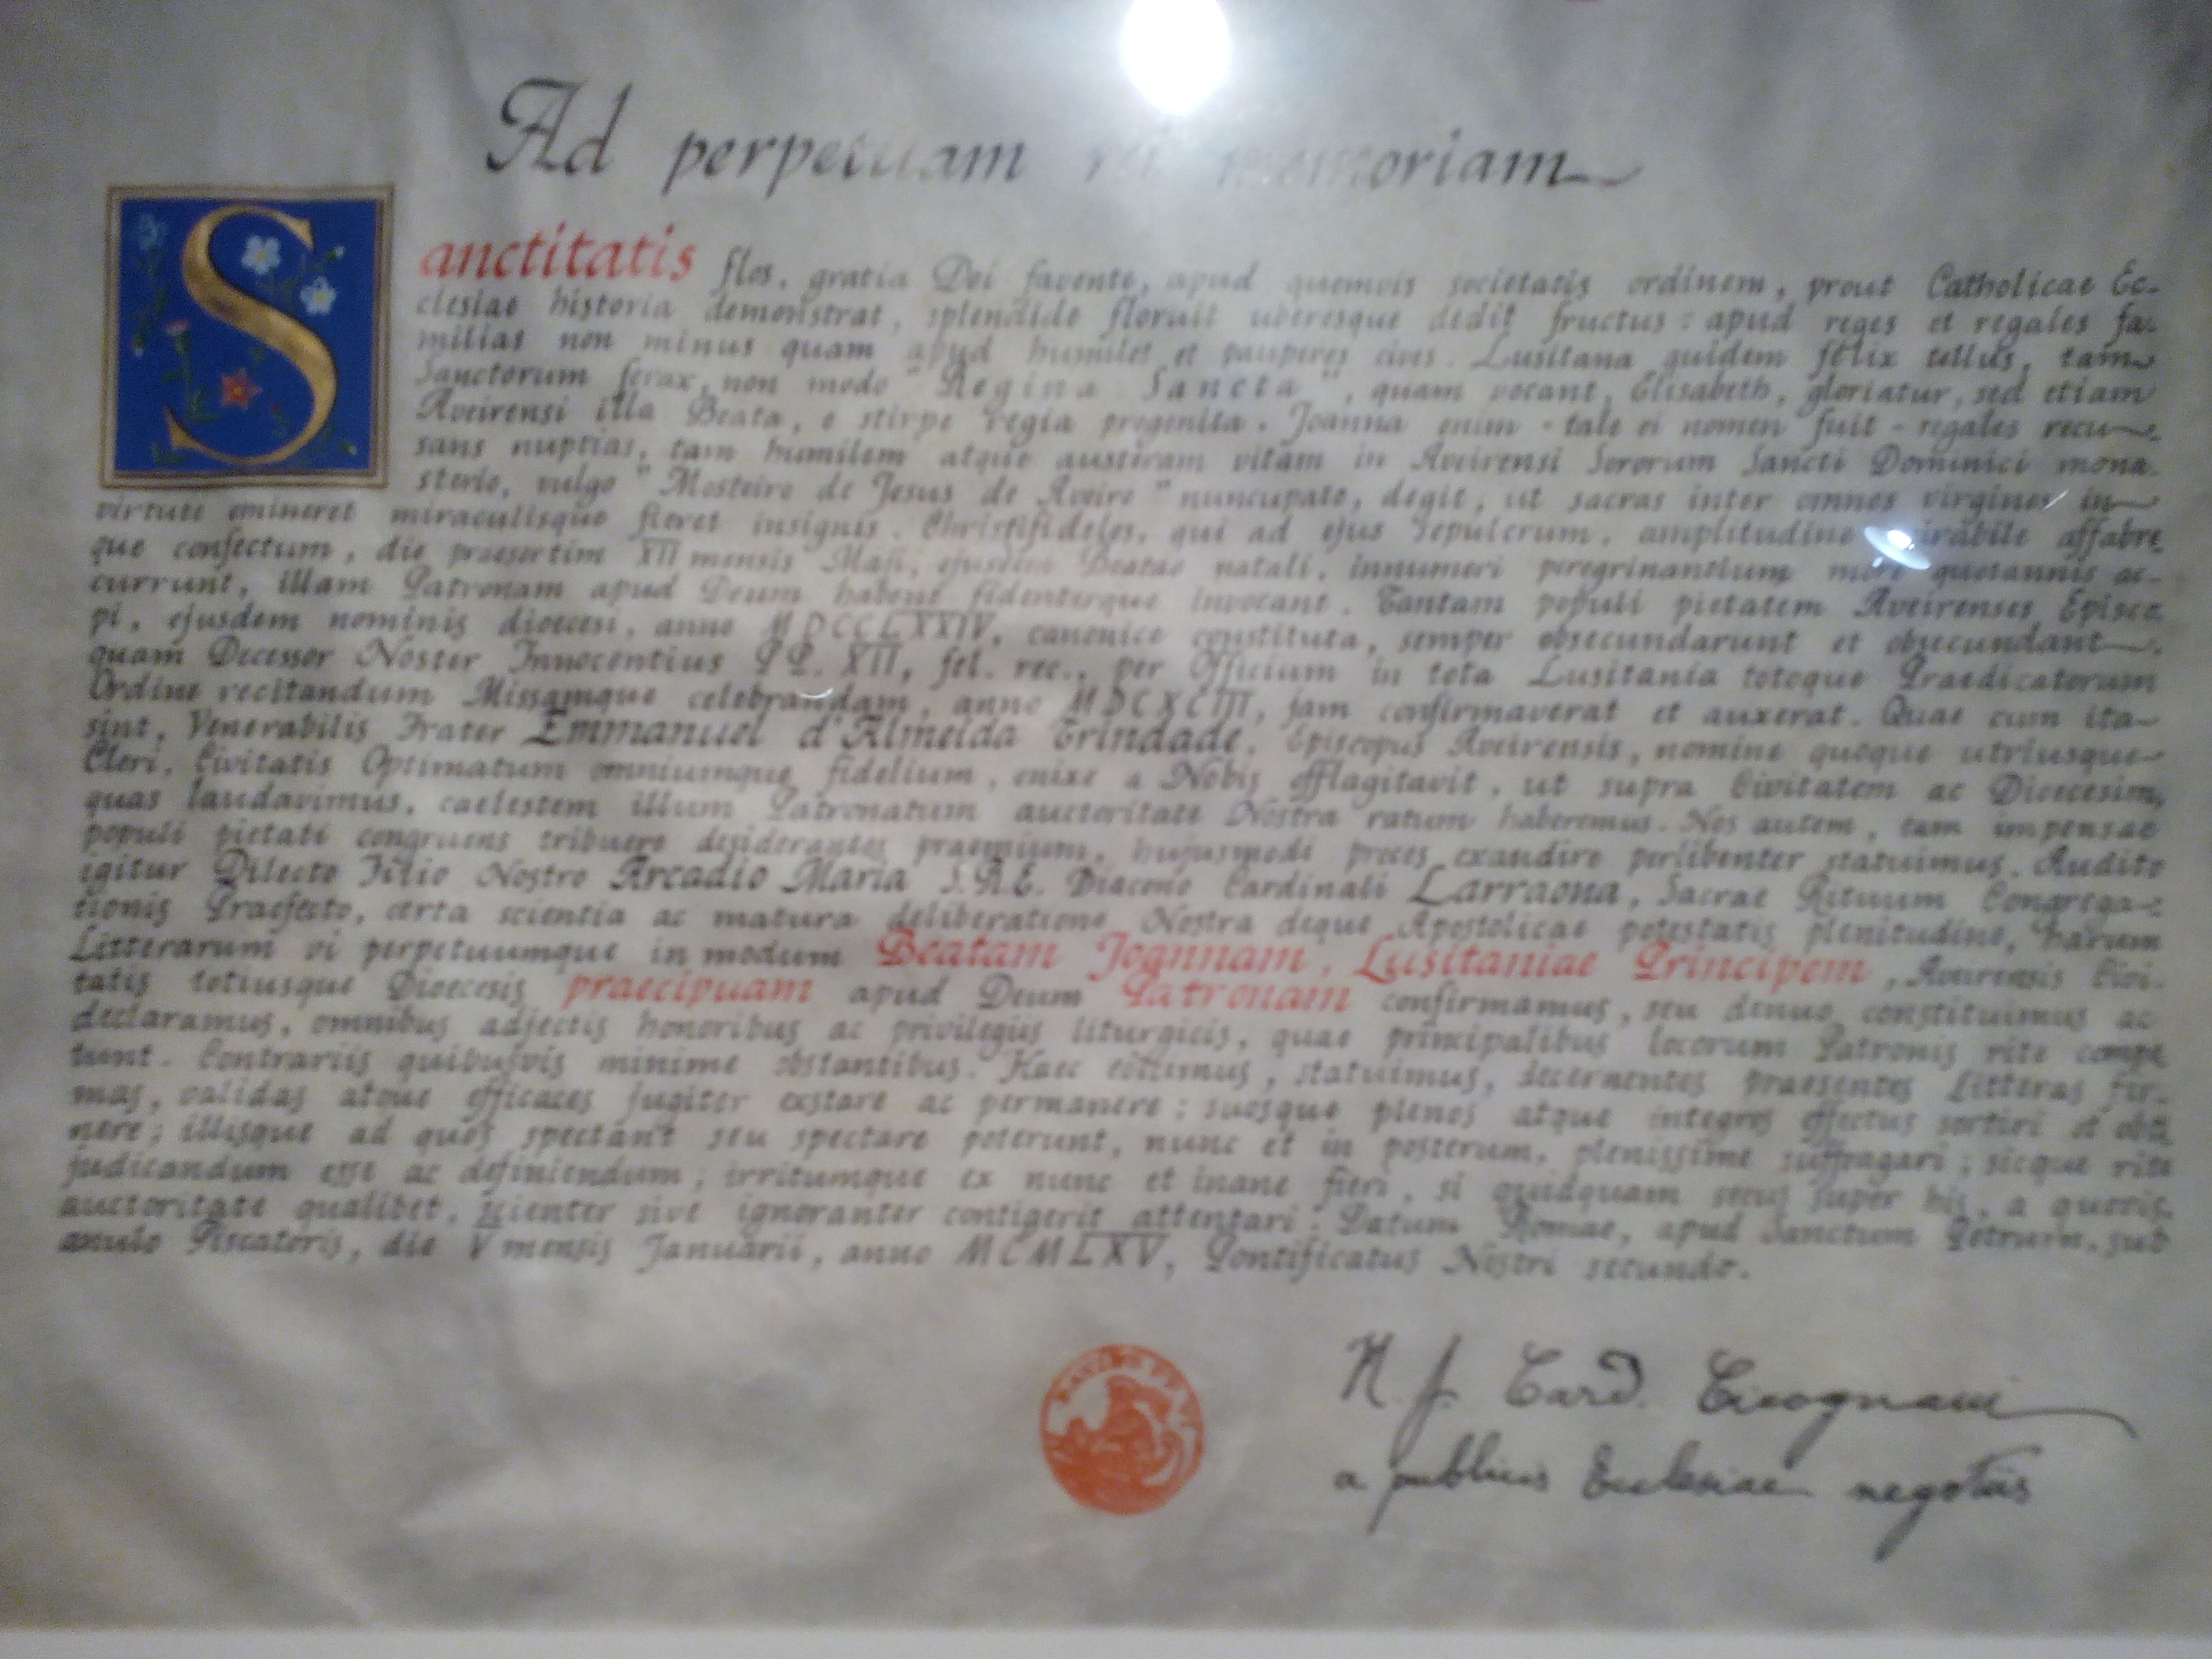 Ad perpetuam rei memoriam
Sanctitatis flos, gratia Dei favente, apud quemvis societatis ordinem, prout Catholicae Ec-
clesiae historia demonstrat, splendide floruit uberesque dedit fructus: apud reges et regales fa-
milias non minus quam apud humiles et pauperes cives. Lusitana quidem felix tellus, tam
Sanctorum ferax, non modo "Regina Sancta", quam vocant, Elisabeth, gloriatur, sed etiam
Aveirensi illa Beata, e stirpe regia progenita. Joanna enim - tale ei nomen fuit - regales recu-
sans nuptias, tam humilem atque austeram vitam in Aveirensi Sororum Sancti Dominici mona-
sterio, vulgo "Mosteiro de Jesus de Aveiro" nuncupato, degit, ut sacras inter omnes virgines in
virtute emineret miraculisque fieret insignis. Christifideles, qui ad ejus sepulcrum, amplitudine mirabile affabre-
que confectum, die praesertim XII mensis Maji, ejusdem Beatae natali, innumeri peregrinantium more quotannis ac-
currunt, illam Patronam apud Deum habent fidenterque invocant. Tantam populi pietatem Aveirenses Episco-
pi, ejusdem nominis dioecesi, anno MDCCLXXIV, canonice constituta, semper obsecundarunt et obsecundant,
quam Decessor Noster Innocentius PP. XII, fel. rec., per Officium in tota Lusitania totoque Praedicatorum
Ordine recitandum Missamque celebrandam, anno MDCXCIII, jam confirmaverat et auxerat. Quae cum ita
sint, Venerabilis Frater Emmanuel d'Almeida Trindade, Episcopus Aveirensis, nomine quoque utriusque
Cleri, Civitatis Optimatum omniumque fidelium, enixe a Nobis efflagitavit, ut supra Civitatem ac Dioecesim,
quas laudavimus, caelestem illum Patronatum auctoritate Nostra ratum haberemus. Nos autem, tam impensae
populi pietati congruens tribuere desiderantes praemium, hujusmodi preces exaudire perlibenter statuimus. Audito
igitur Dilecto Filio Nostro Arcadio Maria S.R.E. Diacono Cardinali Larraona, Sacrae Rituum Congrega-
tionis Praefecto, certa scientia ac matura deliberatione Nostra deque Apostolicae potestatis plenitudine, harum
Litterarum vi perpetuumque in modum Beatam Joannam, Lusitaniae Principem, Aveirensis Civi-
tatis totiusque Dioecesis praecipuam apud Deum Patronam confirmamus, seu denuo constituimus ac
declaramus, omnibus adjectis honoribus ac privilegiis liturgicis, quae principalibus locorum Patronis rite compe
tunt. Contrariis quibusvis minime obstantibus. Haec edicimus, statuimus, decernentes praesentes Litteras fir-
mas, validas atque efficaces jugiter exstare ac permanere; suosque plenos atque integros effectus sortiri et obti
nere; illisque ad quos spectant seu spectare poterunt, nunc et in posterum, plenissime suffragari; sicque rite
judicandum esse ac definiendum; irritumque ex nunc et inane fieri, si quidquam secus super his, a quovis,
auctoritate qualibet, scienter sive ignoranter contigerit attentari. Datum Romae, apud Sanctum Petrum, sub
anulo Piscatoris, die V mensis Januarii, anno MCMLXV, Pontificatus Nostri secundo.
H. J. Card. Cicognani
a publicis Ecclesiae negotiis